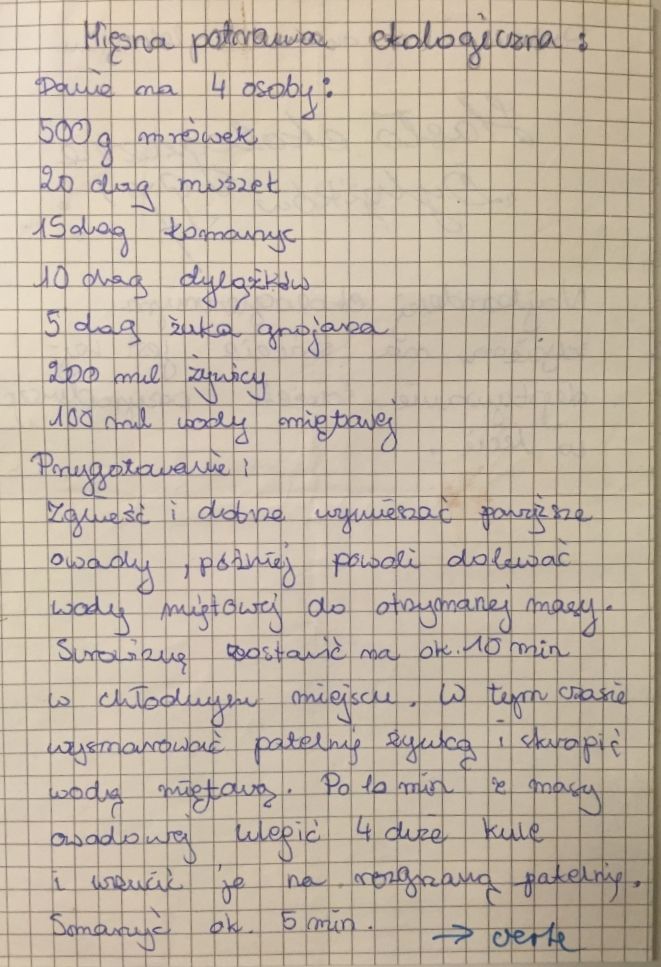 Mięsna potrawa ekologiczna:
Danie na 4 osoby:
500g mrówek
20 dag muszek
15 dag komarzyc
10 dag dylążków
5 dag żuka gnojaża
200 ml żywicy
100 ml wody miętowej
Przygotowanie:
Zgnieść i dobrze wymieszać powyższe
owady, później powoli dolewać
wody miętowej do otrzymanej masy.
ostawić na ok. 10 min
w chłodnym miejscu. W tym czasie
wysmarować patelnię żywicą i skropić
wodą miętową. Po 10 min z masy
owadowej ulepić 4 duże kule
i wrzucić je na rozgrzaną patelnię.
Smażyć ok. 5 min. → verte